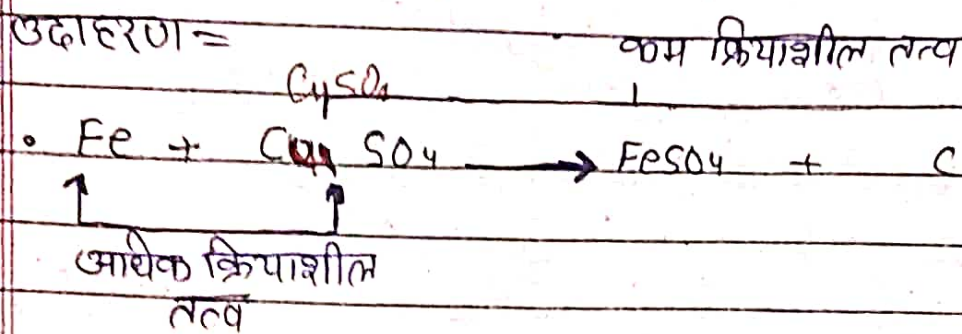 उदाहरण =
कम क्रियाशील तत्व
CuSO4
• Fe + Cu SO4 → FeSO4 + C
आधिक क्रियाशील
तत्व